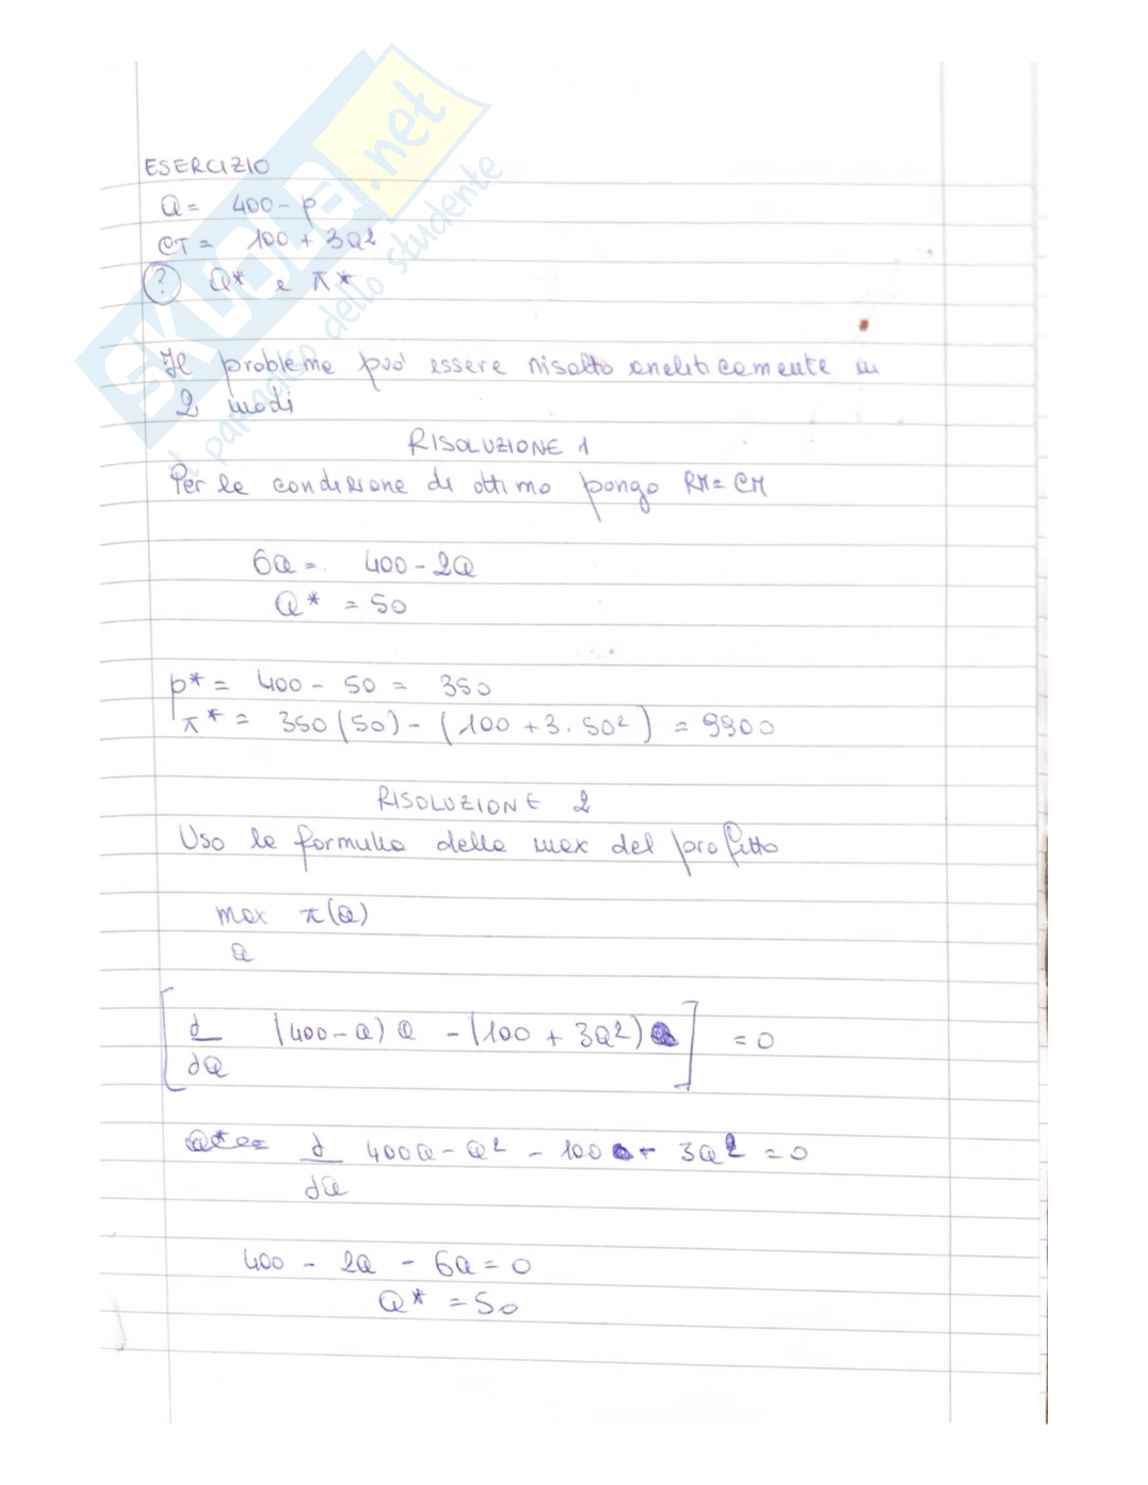 SKUOLA.net
il paradiso dello studente
ESERCIZIO
Q = 400 - p
CT = 100 + 3Q2
? Q* e π*
Il probleme può essere risolto analiticamente in
2 modi
RISOLUZIONE 1
Per le condizione di ottimo pongo RM = CM
6Q = 400 - 2Q
Q* = 50
p* = 400 - 50 = 350
π* = 350 (50) - (100 + 3 · 50²) = 9900
RISOLUZIONE 2
Uso le formulla delle max del profitto
max π(Q)
Q
[ d/dQ (400 - Q) Q - (100 + 3Q²) ] = 0
d/dQ 400Q - Q² - 100 - 3Q² = 0
400 - 2Q - 6Q = 0
Q* = 50